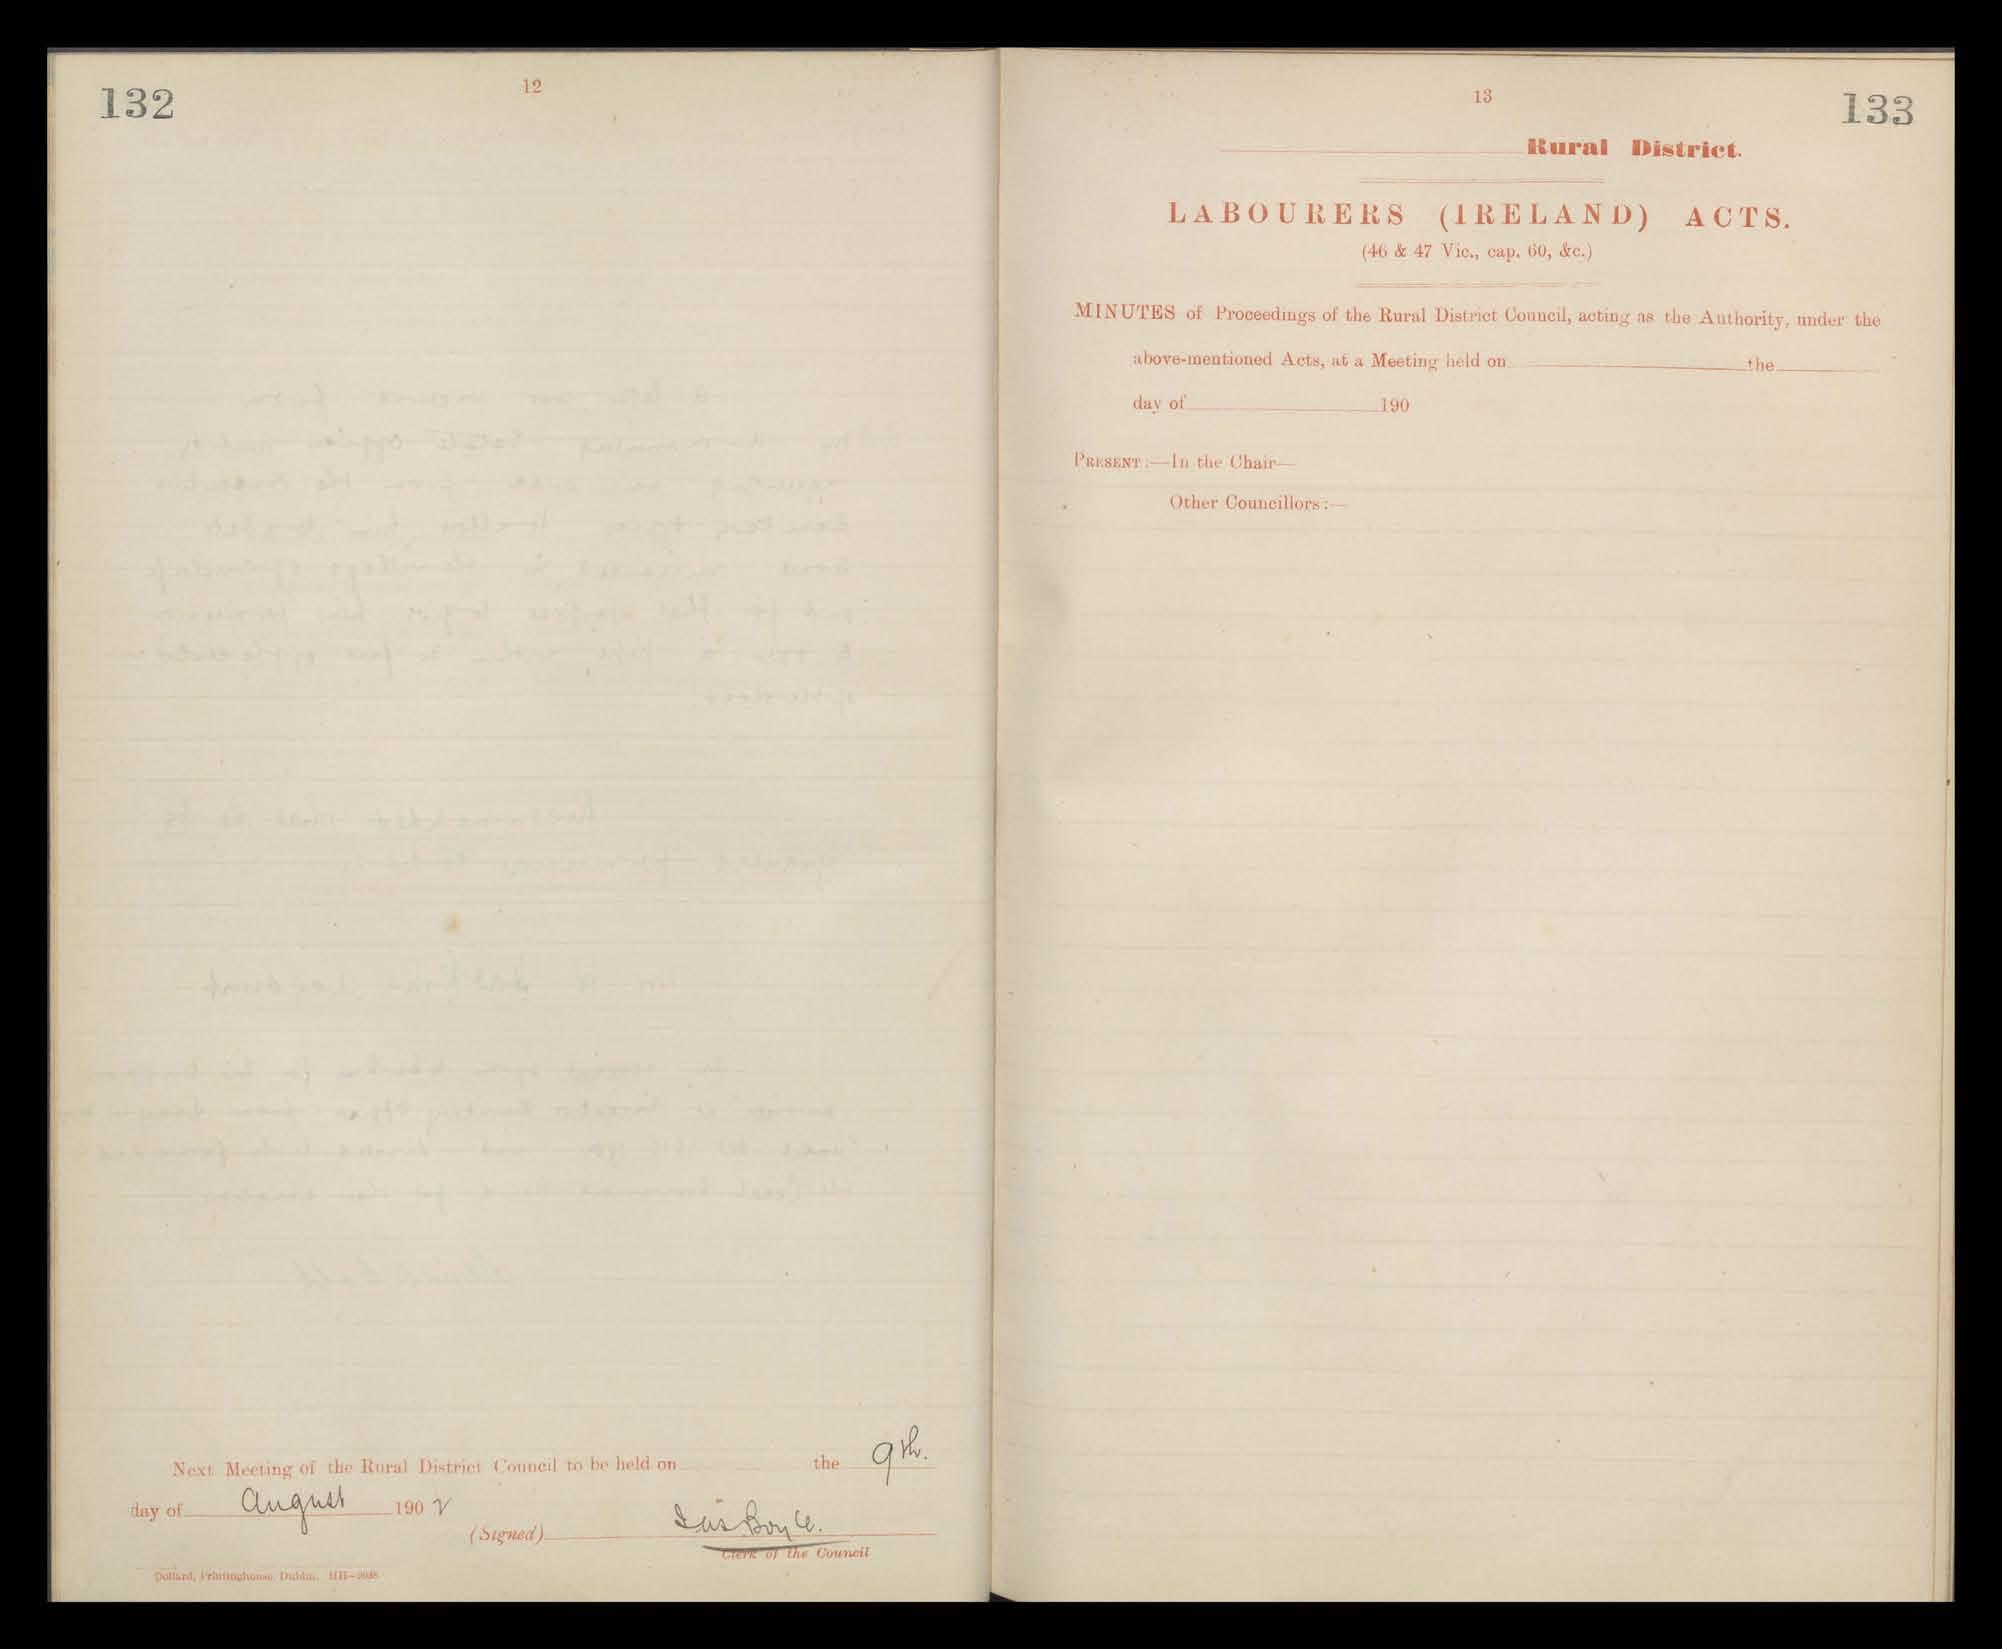 132
12
Next Meeting of the Rural District Council to be held on the 9th.
day of August 1902
(Signed) Jas Boyle.
Clerk of the Council
Dollard, Printinghouse, Dublin.
13
133
Rural District.
LABOURERS (IRELAND) ACTS.
(46 & 47 Vic., cap. 60, &c.)
MINUTES of Proceedings of the Rural District Council, acting as the Authority, under the
above-mentioned Acts, at a Meeting held on the
day of 190
PRESENT:—In the Chair—
Other Councillors:—